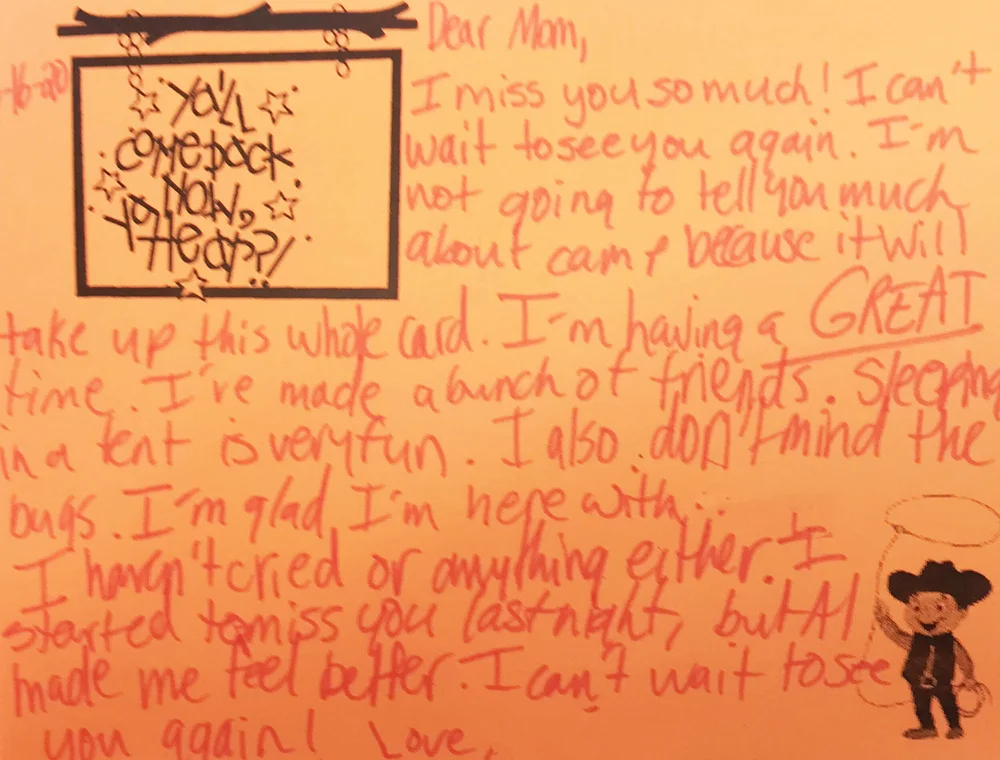 Dear Mom,
-16-20
Y'all
come back
Now,
Ya
Hear?!
I miss you so much! I can't
wait to see you again. I'm
not going to tell you much
about camp because it will
take up this whole card. I'm having a GREAT
time. I've made a bunch of friends. Sleeping
in a tent is very fun. I also don't mind the
bugs. I'm glad I'm here with...
I haven't cried or anything either. I
started to miss you last night, but Al
made me feel better. I can't wait to see
you again! Love,